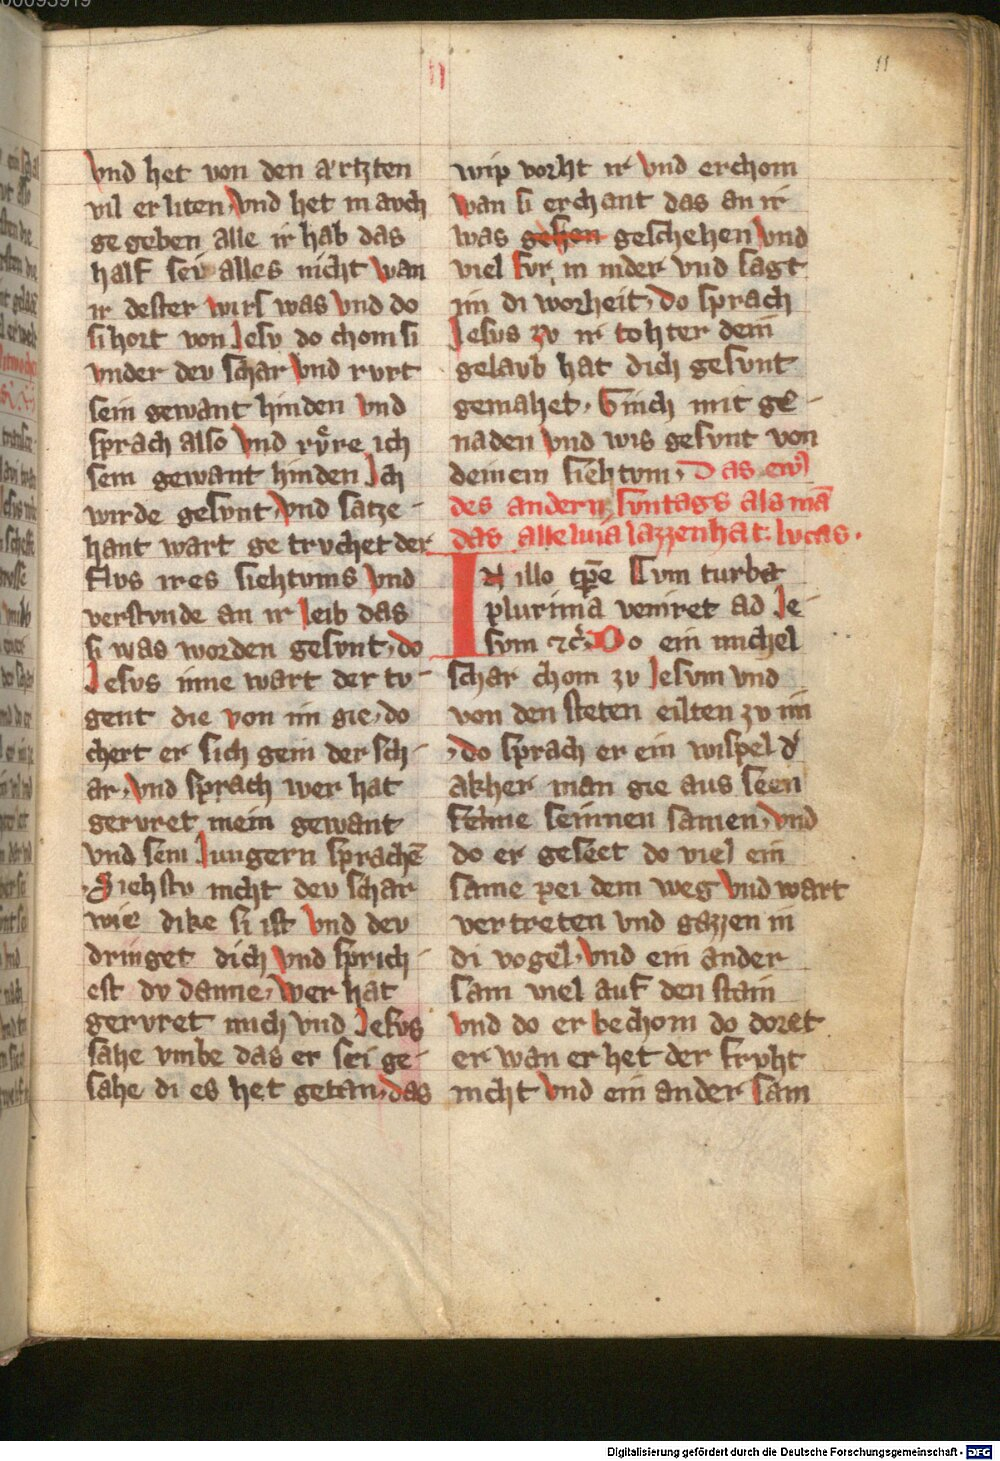 11
vnd het von den artzten
vil erliten, vnd het in avch
ge geben alle ir hab das
half sei alles nicht wan
ir dester wirs was vnd do
si hort von Jesv do chom si
vnder dev schar vnd rvrt
sein gewant hinden vnd
sprach also vnd rvͤre ich
sein gewant hinden Jch
wirde gesvnt, vnd satze-
hant wart ge trvchet der
flvs ires siehtvms vnd
verstvnde an ir leib das
si was worden gesvnt, do
Jesvs inne wart der tv-
gent die von im gie, do
chert er sich gein der sch-
ar, vnd sprach wer hat
gervret mein gewant
vnd sein Jungern sprachē
Siehstv nicht dev schar
wie dike si ist vnd dev
dringet dich vnd sprich-
est dv danne, wer hat
gervret mich vnd Jesvs
sahe vmbe das er sei ge-
sahe di es het getan, das
wip vorht ir vnd erchom
wan si erchant das an ir
was geschehen vnd
viel fvr in nider vnd sagt
im di worheit, do sprach
Jesvs zv ir tohter dein
gelavb hat dich gesvnt
gemahet, Ginch mit ge-
naden vnd wis gesvnt von
deinem siehtvm, Das ew͛
des andern svntags als mā
das alleluia lazzen hat. lvcas.
IN illo tp̄e Cvm turba
plurima veniret ad Je-
svm ⁊c̄. Do ein michel
schar chom zv Jesvm vnd
von den steten eilten zv im
, do sprach er ein wispel d͛
akher man gie aus seen
seinnen samen, vnd
do er geseet do viel ein
same pei dem weg vnd wart
vertreten vnd gazzen in
di vogel, vnd ein ander
sam viel auf den stain
vnd do er bechom do doret
er wan er het der frvht
nicht vnd ein ander sam
Digitalisierung gefördert durch die Deutsche Forschungsgemeinschaft - DFG